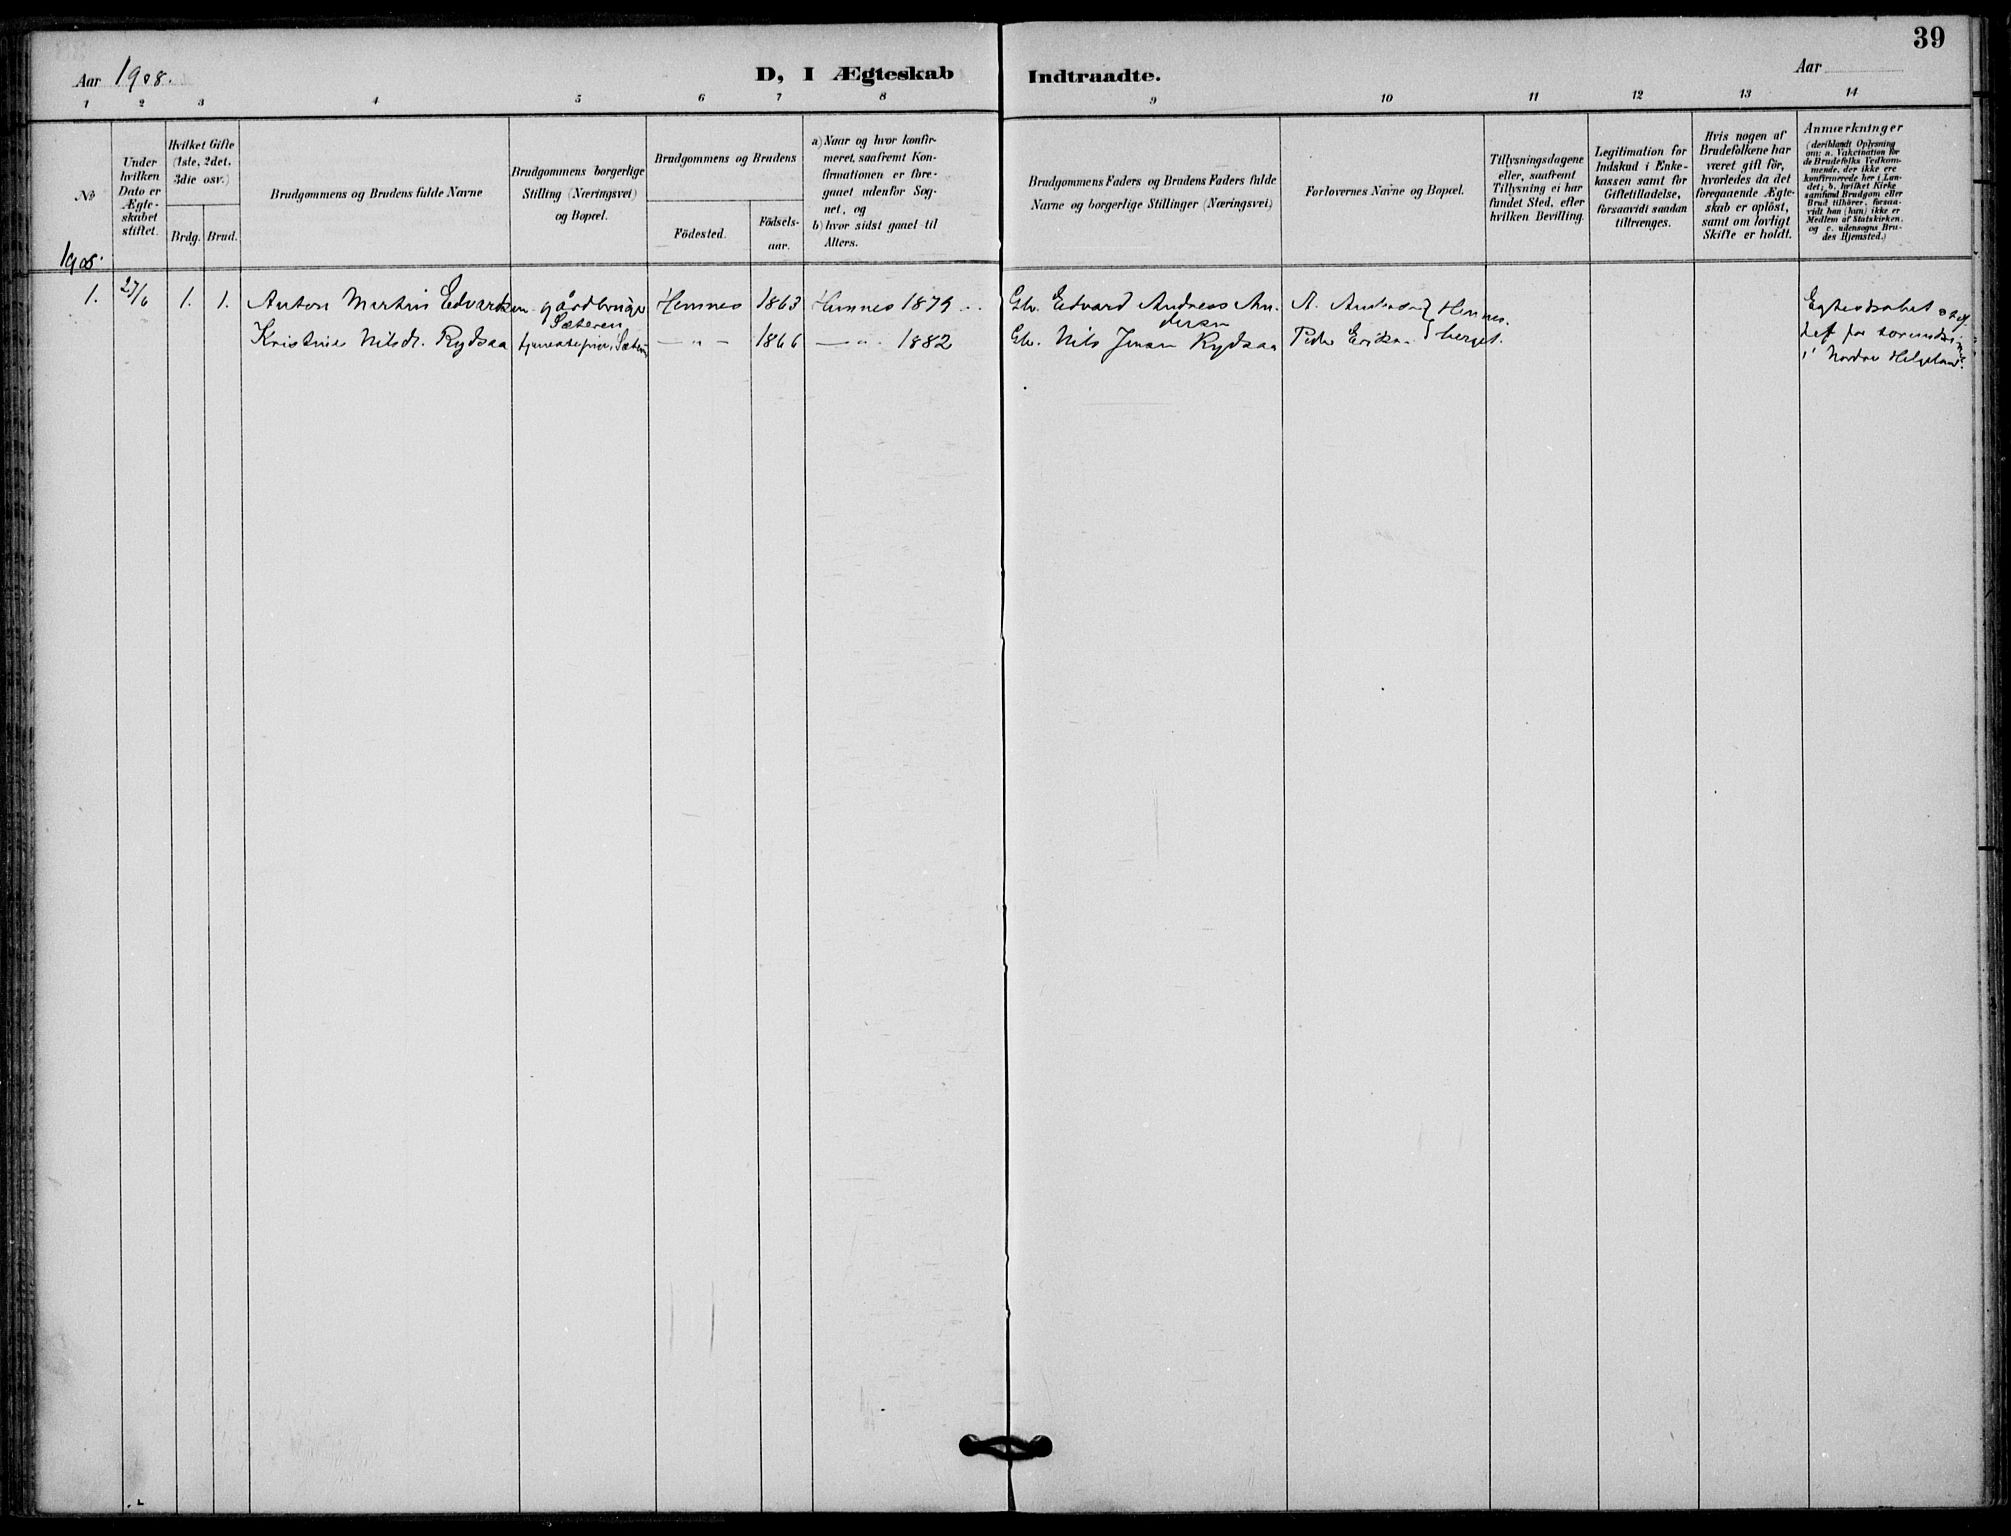 39
Aar 1908.
D, I Ægteskab Indtraadte.
Aar
1 2 3 4 5 6 7 8 9 10 11 12 13 14
№
Under
hvilken
Dato er
Ægte-
skabet
stiftet.
Hvilket Gifte
(1ste, 2det,
3die osv.)
Brdg. Brud.
Brudgommens og Brudens fulde Navne
Brudgommens borgerlige
Stilling (Næringsvei)
og Bopæl.
Brudgommens og Brudens
Födested.
Födsels-
aar.
a) Naar og hvor konfir-
meret, saafremt Kon-
firmationen er fore-
gaaet udenfor Sog-
net, og
b) hvor sidst gaaet til
Alters.
Brudgommens Faders og Brudens Faders fulde
Navne og borgerlige Stillinger (Næringsvei)
Forlovernes Navne og Bopæl.
Tillysningsdagene
eller, saafremt
Tillysning ei har
fundet Sted, efter
hvilken Bevilling.
Legitimation for
Indskud i Enke-
kassen samt for
Giftetilladelse,
forsaavidt saadan
tiltrænges.
Hvis nogen af
Brudefolkene har
været gift för,
hvorledes da det
foregaaende Ægte-
skab er oplöst,
samt om lovligt
Skifte er holdt.
Anmærkninger
(deriblandt Oplysning
om: a. Vakcination for
de Brudefolks Vedkom-
mende, der ikke ere
konfirmerede her i Lan-
det; b. hvilket Kirke
samfund Brudgom eller
Brud tilhörer, forsaa-
vidt han (hun) ikke er
Medlem af Statskirken,
og c. udensogns Bru-
des Hjemsted.)
1908.
1. 27/6 1. 1. Anton Martin Edvardsen gårdbruger Hemnes 1863 Hemnes 1879 Gbr. Edvard Andreas An-
Sæteren
dersen
Kristine Nilsd. Rydsaa Sæteren — " — 1866 — " 1882 Gbr. Nils Jensen Rydsaa Peder Eriksen
A. Hemnes-
berget.
Egteskabet
i Nordre Helgeland.